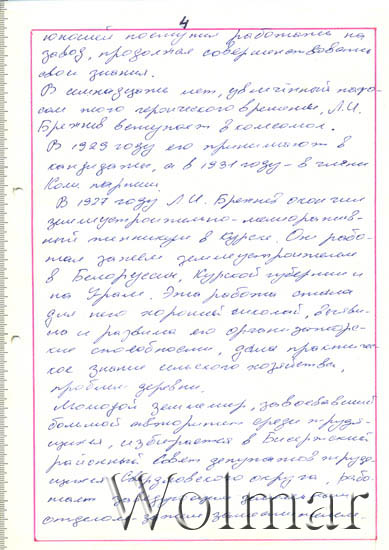 4
юношей поступил работать на
завод, продолжая совершенствовать
свои знания.
В семнадцать лет, увлечённый пафо-
сом того героического времени, Л.И.
Брежнев вступает в комсомол.
В 1929 году его принимают в
кандидаты, а в 1931 году - в члены
Ком. партии.
В 1927 году Л.И. Брежнев окончил
землеустроительно-мелиоратив-
ный техникум в Курске. Он рабо-
тал затем землеустроителем
в Белоруссии, Курской губернии и
на Урале. Эта работа стала
для него хорошей школой, выяви-
ла и развила его организаторс-
кие способности, дала практичес-
кое знание сельского хозяйства,
проблем деревни.
Молодой землемер, завоевавший
большой авторитет среди трудя-
щихся, избирается в Бисертский
районный Совет депутатов трудя-
щихся Свердловского округа, рабо-
тает заведующим
отделом, затем заместителем
Wolmar